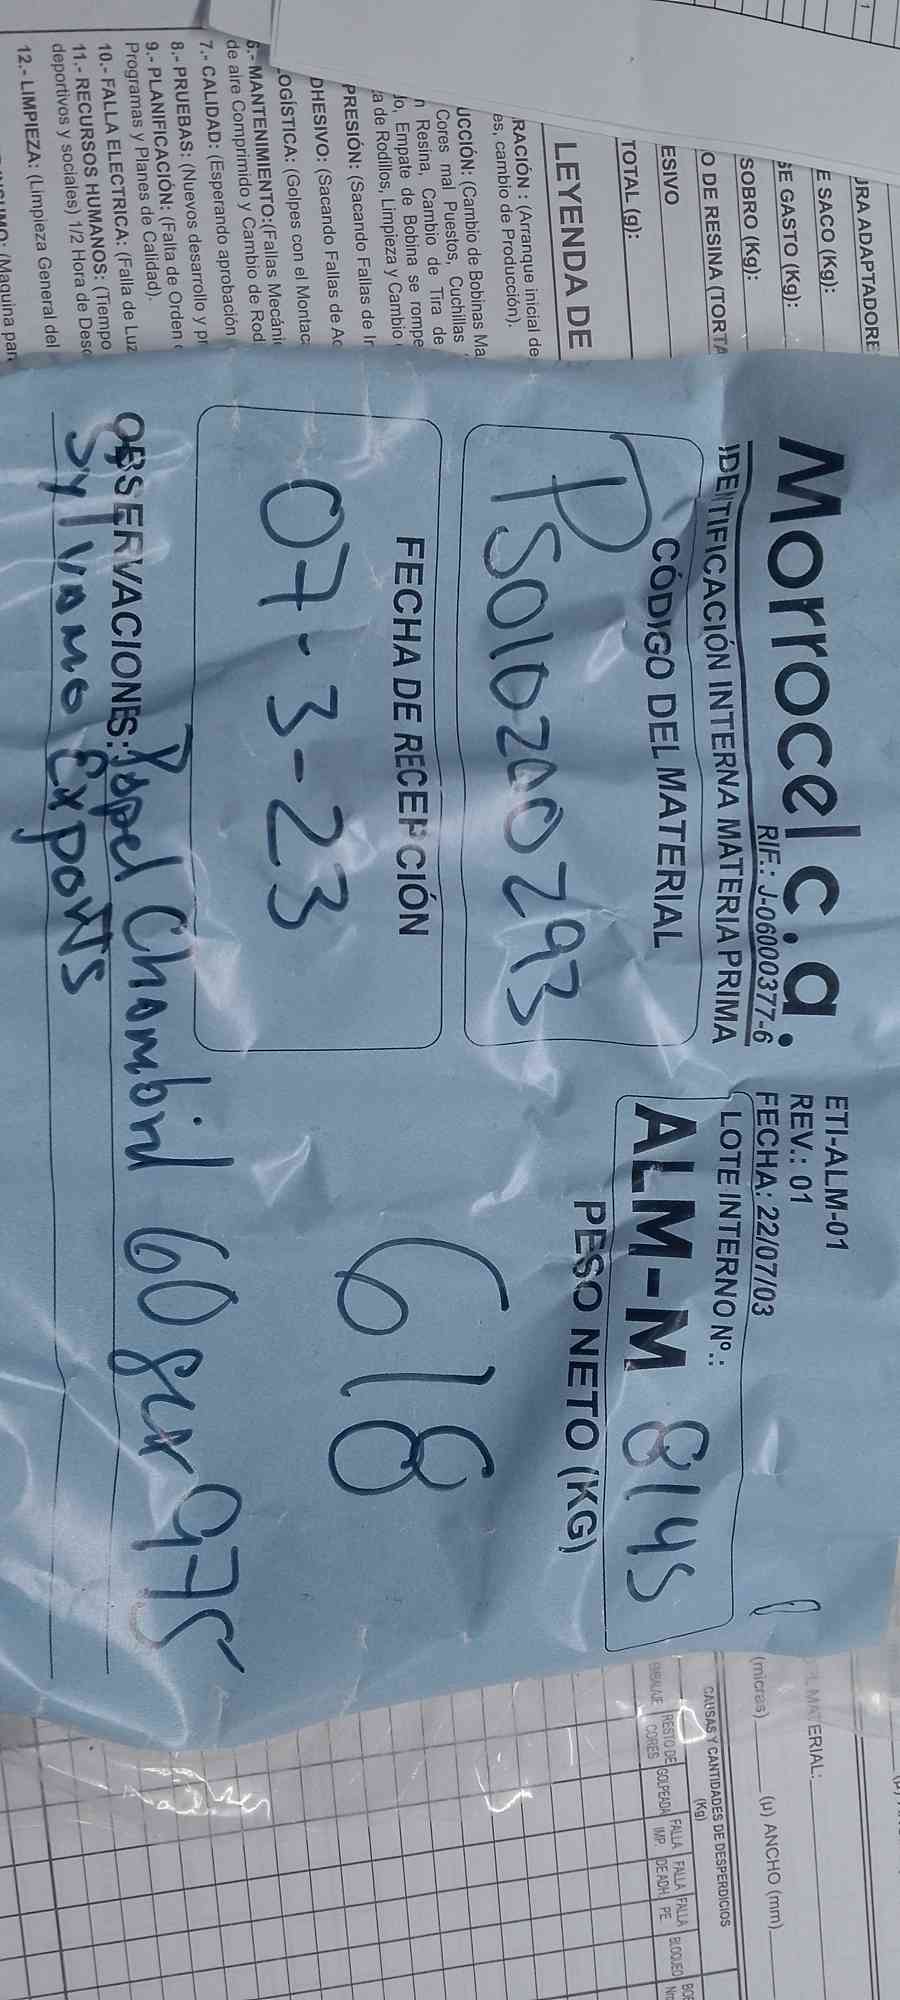 Morrocel c.a.
RIF.: J-06000377-6
IDENTIFICACIÓN INTERNA MATERIA PRIMA
ETI-ALM-01
REV.: 01
FECHA: 22/07/03
LOTE INTERNO Nº.:
ALM-M 8145
CÓDIGO DEL MATERIAL
PS010200293
PESO NETO (KG)
618
FECHA DE RECEPCIÓN
07-3-23
OBSERVACIONES: Papel Chambril 60 975
Sylvamo Exports
ADAPTADORE
E SACO (Kg):
DE GASTO (Kg):
SOBRO (Kg):
O DE RESINA (TORTA
ESIVO
TOTAL (g):
LEYENDA DE
RACIÓN : (Arranque inicial de
es, cambio de Producción).
UCCIÓN: (Cambio de Bobinas Ma
Cores mal Puestos, Cuchillas
Resina, Cambio de Tira de
o, Empate de Bobina se rompe
a de Rodillos, Limpieza y Cambio
PRESIÓN: (Sacando Fallas de Ir
DHESIVO: (Sacando Fallas de Ad
OGÍSTICA: (Golpes con el Montac
6.- MANTENIMIENTO:(Fallas Mecáni
de aire Comprimido y Cambio de Rod
7.- CALIDAD: (Esperando aprobación
8.- PRUEBAS: (Nuevos desarrollo y pr
9.- PLANIFICACIÓN: (Falta de Orden
Programas y Planes de Calidad).
10.- FALLA ELECTRICA: (Falla de Luz
11.- RECURSOS HUMANOS: (Tiempo
deportivos y sociales) 1/2 Hora de Desc
12.- LIMPIEZA: (Limpieza General del
(Maquina par
MATERIAL:
(micras) (µ) ANCHO (mm)
CAUSAS Y CANTIDADES DE DESPERDICIOS
(Kg)
EMBALAJE
RESTO DE CORES
GOLPEADA
FALLA IMP.
FALLA DE ADH.
FALLA PE
BLOQUEO